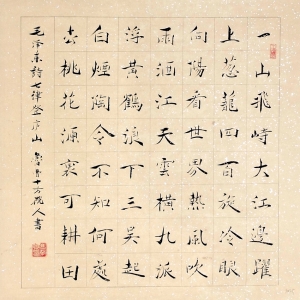 一山飛峙大江邊躍
上蔥蘢四百旋冷眼
向陽看世界熱風吹
雨洒江天雲橫九派
浮黃鶴浪下三吳起
白煙陶令不知何處
去桃花源裏可耕田
毛澤東詩七律登庐山 十方人書